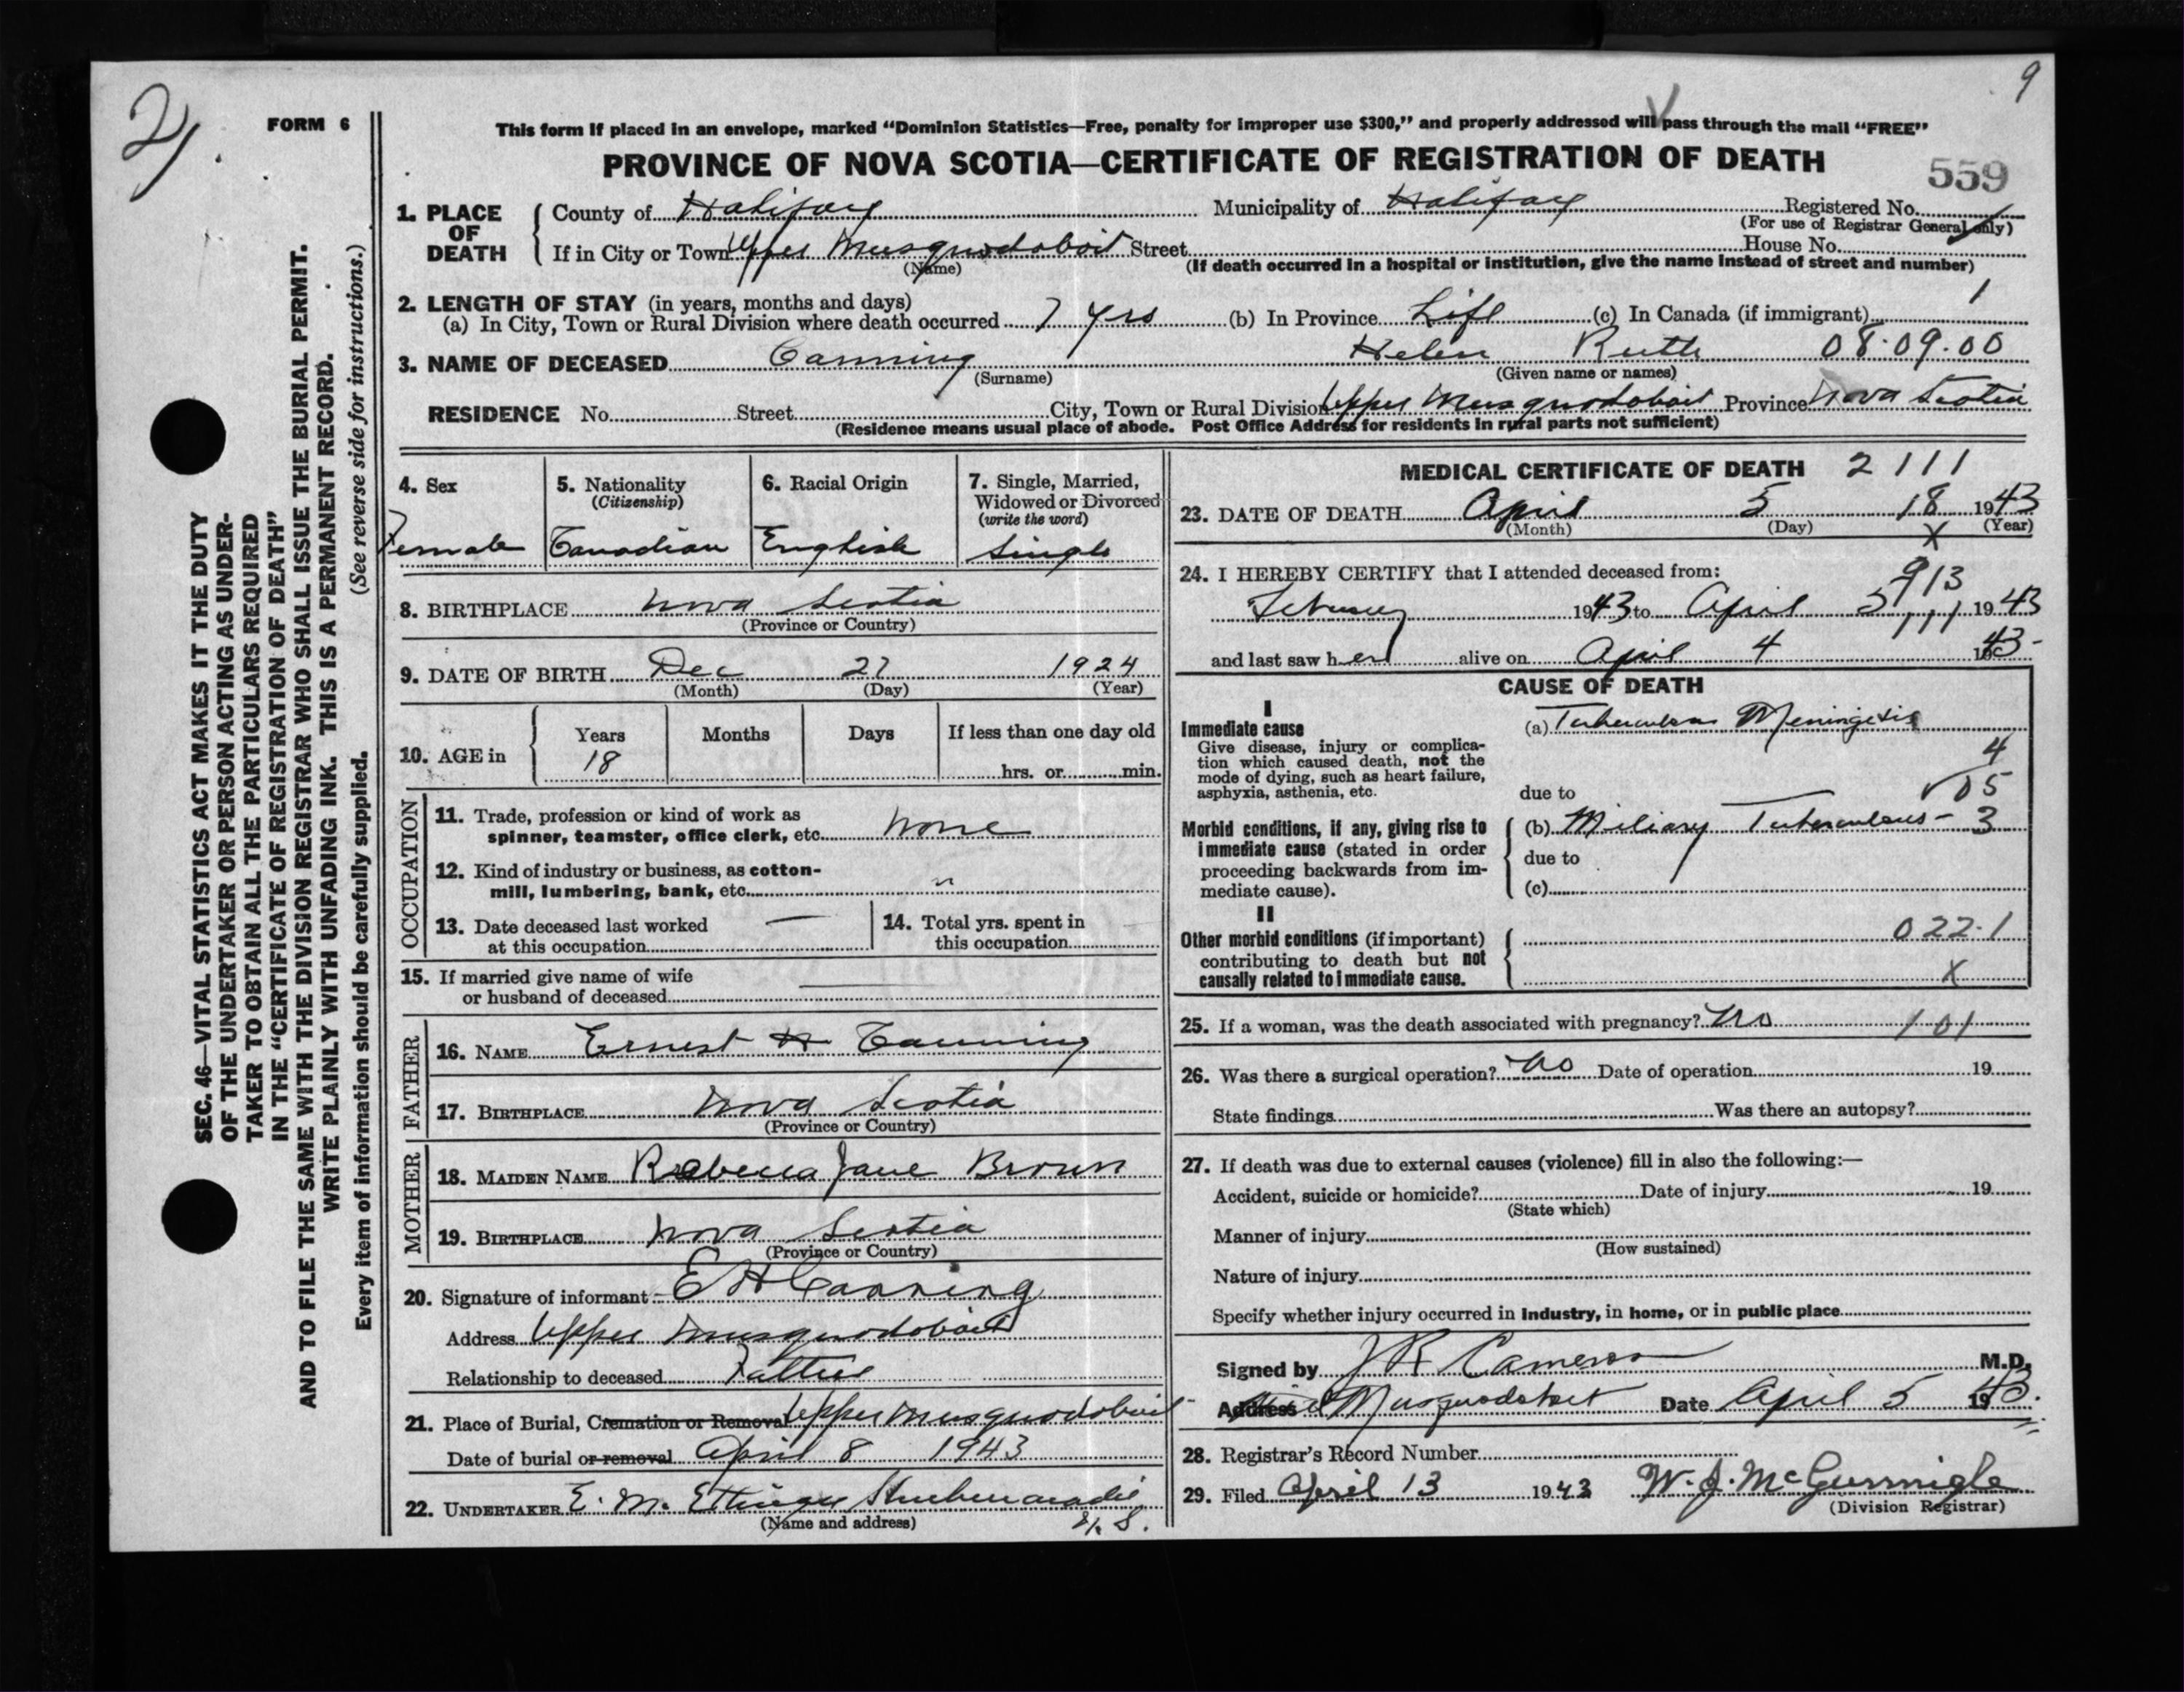 9
2
FORM 6
This form if placed in an envelope, marked “Dominion Statistics—Free, penalty for improper use $300,” and properly addressed will pass through the mail “FREE”
PROVINCE OF NOVA SCOTIA—CERTIFICATE OF REGISTRATION OF DEATH
559
1. PLACE OF DEATH
County of Halifax Municipality of Halifax Registered No.
(For use of Registrar General only)
If in City or Town Upper Musquodoboit Street House No.
(Name) (If death occurred in a hospital or institution, give the name instead of street and number)
2. LENGTH OF STAY (in years, months and days) 1
(a) In City, Town or Rural Division where death occurred 7 yrs (b) In Province Life (c) In Canada (if immigrant)
3. NAME OF DECEASED Canning Helen Ruth 08.09.00
(Surname) (Given name or names)
RESIDENCE No. Street City, Town or Rural Division Upper Musquodoboit Province Nova Scotia
(Residence means usual place of abode. Post Office Address for residents in rural parts not sufficient)
4. Sex
Female
5. Nationality
(Citizenship)
Canadian
6. Racial Origin
English
7. Single, Married,
Widowed or Divorced
(write the word)
Single
8. BIRTHPLACE Nova Scotia
(Province or Country)
9. DATE OF BIRTH Dec 27 1924
(Month) (Day) (Year)
10. AGE in
Years Months Days If less than one day old
18 hrs. or min.
OCCUPATION
11. Trade, profession or kind of work as
spinner, teamster, office clerk, etc. None
12. Kind of industry or business, as cotton-
mill, lumbering, bank, etc. "
13. Date deceased last worked —
at this occupation
14. Total yrs. spent in
this occupation
15. If married give name of wife
or husband of deceased
FATHER
16. NAME Ernest H Canning
17. BIRTHPLACE Nova Scotia
(Province or Country)
MOTHER
18. MAIDEN NAME Rebecca Jane Brown
19. BIRTHPLACE Nova Scotia
(Province or Country)
20. Signature of informant E H Canning
Address Upper Musquodoboit
Relationship to deceased Father
21. Place of Burial, Cremation or Removal Upper Musquodoboit
Date of burial or removal April 8 1943
22. UNDERTAKER E. M. Ettinger Shubenacadie
(Name and address) N. S.
MEDICAL CERTIFICATE OF DEATH 2 111
23. DATE OF DEATH April 5 18 1943
(Month) (Day) X (Year)
24. I HEREBY CERTIFY that I attended deceased from: 913
February 1943 to April 5 111 1943
and last saw her alive on April 4 43
CAUSE OF DEATH
I
Immediate cause
Give disease, injury or complica-
tion which caused death, not the
mode of dying, such as heart failure,
asphyxia, asthenia, etc.
(a) Tuberculous Meningitis
4
due to 05
Morbid conditions, if any, giving rise to
immediate cause (stated in order
proceeding backwards from im-
mediate cause).
(b) Miliary Tuberculous - 3
due to
(c)
II
Other morbid conditions (if important)
contributing to death but not
causally related to immediate cause.
022.1
X
25. If a woman, was the death associated with pregnancy? No 101
26. Was there a surgical operation? No Date of operation 19
State findings Was there an autopsy?
27. If death was due to external causes (violence) fill in also the following:—
Accident, suicide or homicide? Date of injury 19
(State which)
Manner of injury
(How sustained)
Nature of injury
Specify whether injury occurred in industry, in home, or in public place
Signed by J R Cameron M.D.
Address Musquodoboit Date April 5 1943.
28. Registrar’s Record Number
29. Filed April 13 1943 W. J. McGunnigle
(Division Registrar)
SEC. 46—VITAL STATISTICS ACT MAKES IT THE DUTY
OF THE UNDERTAKER OR PERSON ACTING AS UNDER-
TAKER TO OBTAIN ALL THE PARTICULARS REQUIRED
IN THE “CERTIFICATE OF REGISTRATION OF DEATH”
AND TO FILE THE SAME WITH THE DIVISION REGISTRAR WHO SHALL ISSUE THE BURIAL PERMIT.
WRITE PLAINLY WITH UNFADING INK. THIS IS A PERMANENT RECORD.
Every item of information should be carefully supplied. (See reverse side for instructions.)